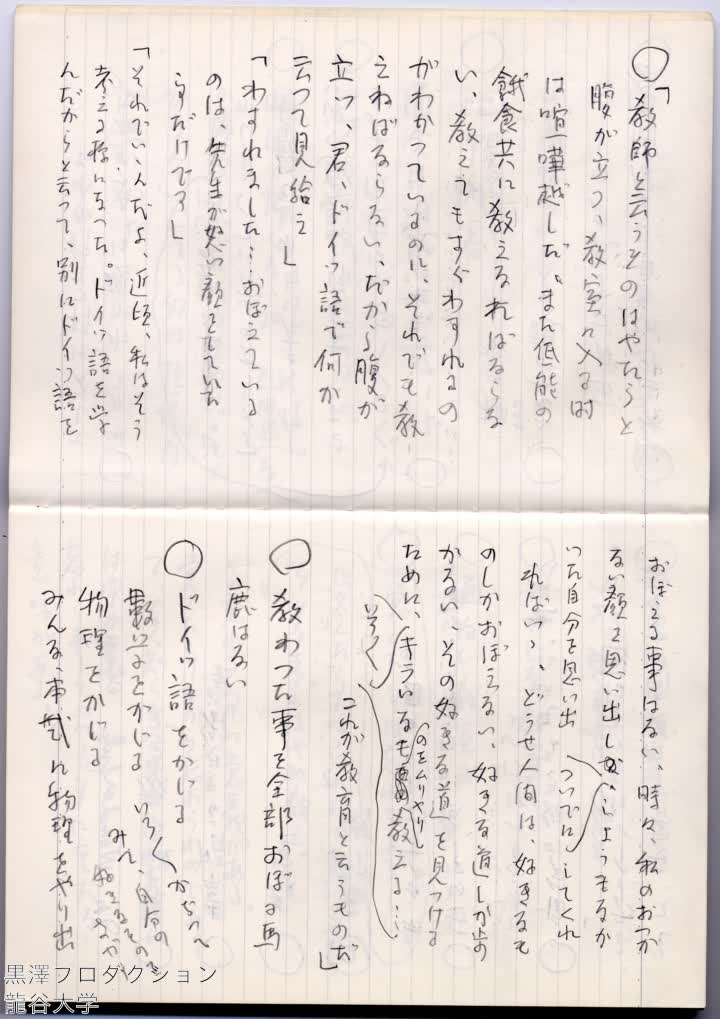 ○「教師と云うものはやたらと
腹が立つ、教室に入る時
は喧嘩越しだ。また低能の
餓食共に教えなればならな
い、教えてもすぐわすれるの
がわかつているのに、それでも教
えねばならない、だから腹が
立つ、君、ドイツ語で何か
云つて見給え」
「わすれました…おぼえている
のは、先生が怒い顔をしていた
事だけです」
「それでいゝんだよ、近頃、私はそう
考える様になつた。ドイツ語を学
んだからと云つて、別にドイツ語を
おぼえる事はない、時々、私のおつか
ない顔を思い出し、しようもなか
つた自分を思い出 ついでに してくれ
ればいゝ、どうせ人間は、好きなも
のしかおぼえない、好きな道しか歩
かない、その好きな道を見つける
ために、いろ〱キライなものをムリやり教える…
これが教育と云うものだ」
○教わつた事を全部おぼる馬
鹿はない
○ドイツ語をかじる
数学をかじる
物理をかじる
いろ〱かぢつて
みて、自分の
みんな、本気に物理をやり出
黒澤プロダクション
龍谷大学